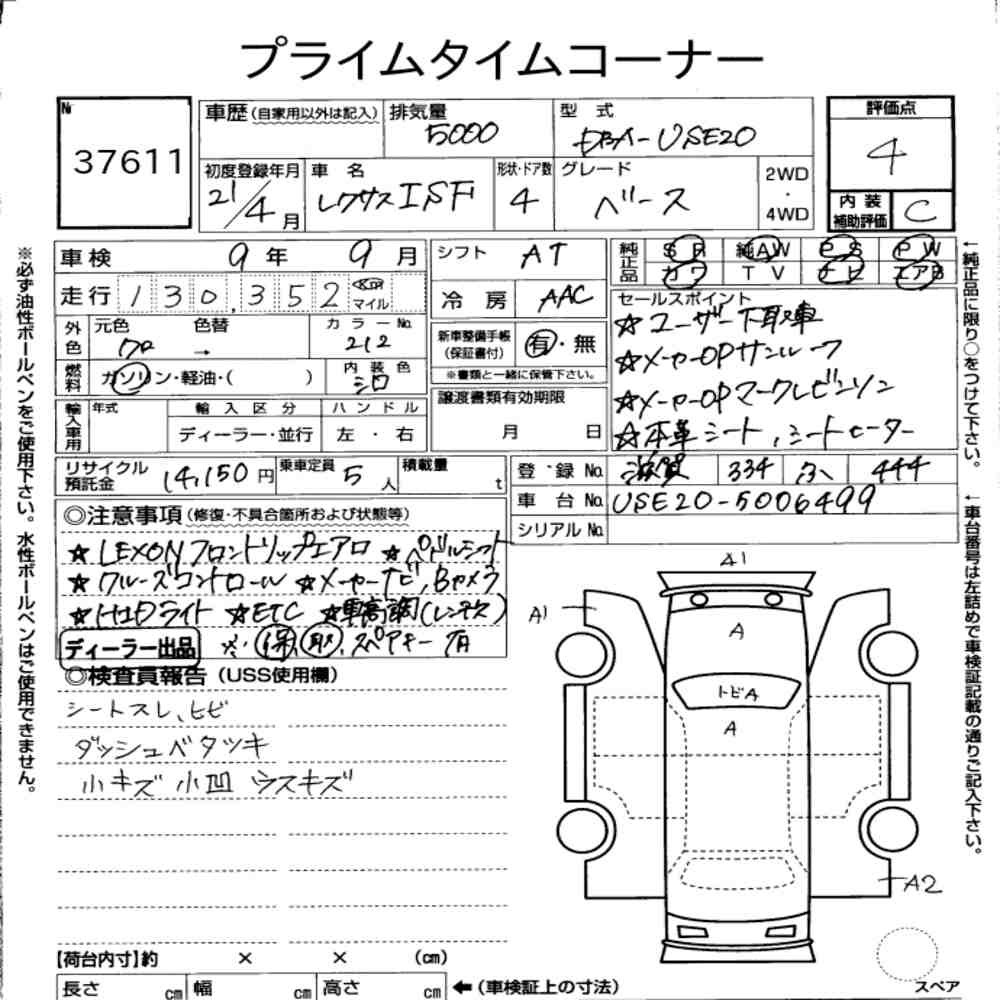 プライムタイムコーナー
№ 37611
車歴(自家用以外は記入) 排気量 5000 型式 DBA-USE20
評価点 4
初度登録年月 21/4月 車名 レクサスISF 形状・ドア数 4 グレード ベース 2WD・4WD
内装補助評価 C
車検 9年 9月 シフト AT
純正品 SR 純AW PS PW
カワ TV ナビ エアB
走行 130,352 km マイル 冷房 AAC
セールスポイント
☆ユーザー下取車
☆メーカーOPサンルーフ
☆メーカーOPマークレビンソン
☆本革シート,シートヒーター
外色 元色 クロ 色替 → カラーNo. 212
新車整備手帳(保証書付) 有・無
※書類と一緒に保管下さい。
燃料 ガソリン・軽油・( ) 内装色 シロ
譲渡書類有効期限
月 日
輸入車用 年式 輸入区分 ハンドル
ディーラー・並行 左・右
リサイクル預託金 14,150円 乗車定員 5人 積載量 t
登録No. 滋賀 334 444
車台No. USE20-5006499
シリアルNo.
◎注意事項(修復・不具合箇所および状態等)
☆LEXONフロントリップエアロ ☆パドルシフト
☆クルーズコントロール ☆メーカーナビ,Bカメラ
☆HIDライト ☆ETC ☆車高調(レンテック)
ディーラー出品 ※.保,取.スペアキー有
◎検査員報告(USS使用欄)
シートスレ、ヒビ
ダッシュベタツキ
小キズ 小凹 ウスキズ
A1
A1
A
トビA
A
A2
スペア
【荷台内寸】約 × × (cm)
長さ cm 幅 cm 高さ cm ←(車検証上の寸法)
※必ず油性ボールペンをご使用下さい。水性ボールペンはご使用できません。
←純正品に限り○をつけて下さい。
←車台番号は左詰めで車検証記載の通りご記入下さい。